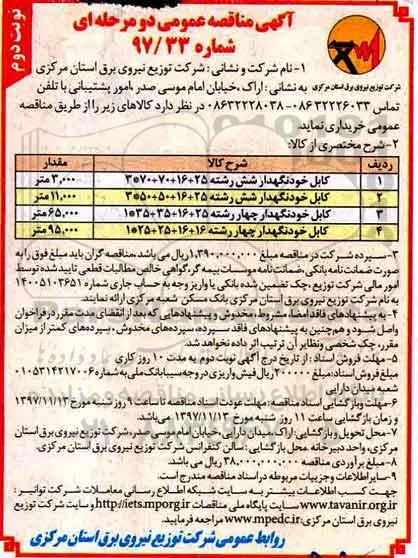 نوبت دوم
آگهی مناقصه عمومی دو مرحله ای
شماره ۹۷/۳۳
شرکت توزیع نیروی برق استان مرکزی
۱- نام شرکت و نشانی: شرکت توزیع نیروی برق استان مرکزی
به نشانی: اراک، خیابان امام موسی صدر، امور پشتیبانی با تلفن
تماس ۰۸۶۳۲۲۲۶۰۳۳ - ۰۸۶۳۲۲۲۸۰۳۸ در نظر دارد کالاهای زیر را از طریق مناقصه
عمومی خریداری نماید.
۲- شرح مختصری از کالا:
ردیف شرح کالا مقدار
۱ کابل خودنگهدار شش رشته ۲۵+۱۶+۷۰+۷۰*۳ ۳,۰۰۰ متر
۲ کابل خودنگهدار شش رشته ۲۵+۱۶+۵۰+۵۰*۳ ۱۱,۰۰۰ متر
۳ کابل خودنگهدار چهار رشته ۲۵+۱۶+۳۵+۳۵*۱ ۶۵,۰۰۰ متر
۴ کابل خودنگهدار چهار رشته ۱۶+۱۶+۲۵+۲۵*۱ ۹۵,۰۰۰ متر
۳- سپرده شرکت در مناقصه مبلغ ۱,۳۹۰,۰۰۰,۰۰۰ ریال می باشد، مناقصه گران باید مبلغ فوق را به
صورت ضمانت نامه بانکی، ضمانت نامه موسسات بیمه گر، گواهی خالص مطالبات قطعی تایید شده توسط
امور مالی شرکت توزیع، چک تضمین شده بانکی یا واریز وجه به حساب جاری شماره ۱۴۰۰۵۱۰۳۶۵۱
به نام شرکت توزیع نیروی برق استان مرکزی بانک مسکن شعبه مرکزی ارائه نمایند.
۴- به پیشنهادهای فاقد امضا، مشروط، مخدوش و پیشنهادهایی که بعد از انقضای مدت مقرر در فراخوان
واصل شود و هم چنین به پیشنهادهای فاقد سپرده، سپرده های مخدوش، سپرده های کمتر از میزان
مقرر، چک شخصی و نظایر آن ترتیب اثر داده نخواهد شد.
۵- مهلت فروش اسناد: از تاریخ درج آگهی نوبت دوم به مدت ۱۰ روز کاری
مبلغ فروش اسناد: مبلغ ۲۰۰۰۰۰ ریال فیش واریزی در وجه سیبا بانک ملی به شماره ۰۱۰۵۳۱۴۲۱۷۰۰۶
شعبه میدان دارایی
۶- مهلت و بازگشایی اسناد مناقصه: مهلت عودت اسناد مناقصه تا ساعت ۹ روز شنبه مورخ ۱۳۹۷/۱۱/۱۳
و زمان بازگشایی ساعت ۱۱ روز شنبه مورخ ۱۳۹۷/۱۱/۱۳ می باشد.
۷- محل تحویل و بازگشایی: اراک، میدان دارایی، خیابان امام موسی صدر، شرکت توزیع نیروی برق استان
مرکزی، واحد دبیرخانه محل بازگشایی: سالن کنفرانس شرکت توزیع نیروی برق استان مرکزی.
۸- مبلغ برآوردی مناقصه ۳۸,۰۰۰,۰۰۰,۰۰۰ ریال می باشد.
۹- سایر اطلاعات و جزییات مربوطه در اسناد مناقصه مندرج است.
جهت کسب اطلاعات بیشتر به سایت شبکه اطلاع رسانی معاملات شرکت توانیر:
www.tavanir.org.ir سایت پایگاه ملی مناقصات http://iets.mporg.ir و سایت شرکت توزیع
نیروی برق استان مرکزی: www.mpedc.ir مراجعه فرمایید.
روابط عمومی شرکت توزیع نیروی برق استان مرکزی